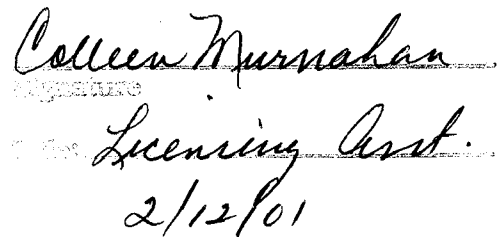 Colleen Murnahan
Signature
Licensing Asst.
2/12/01